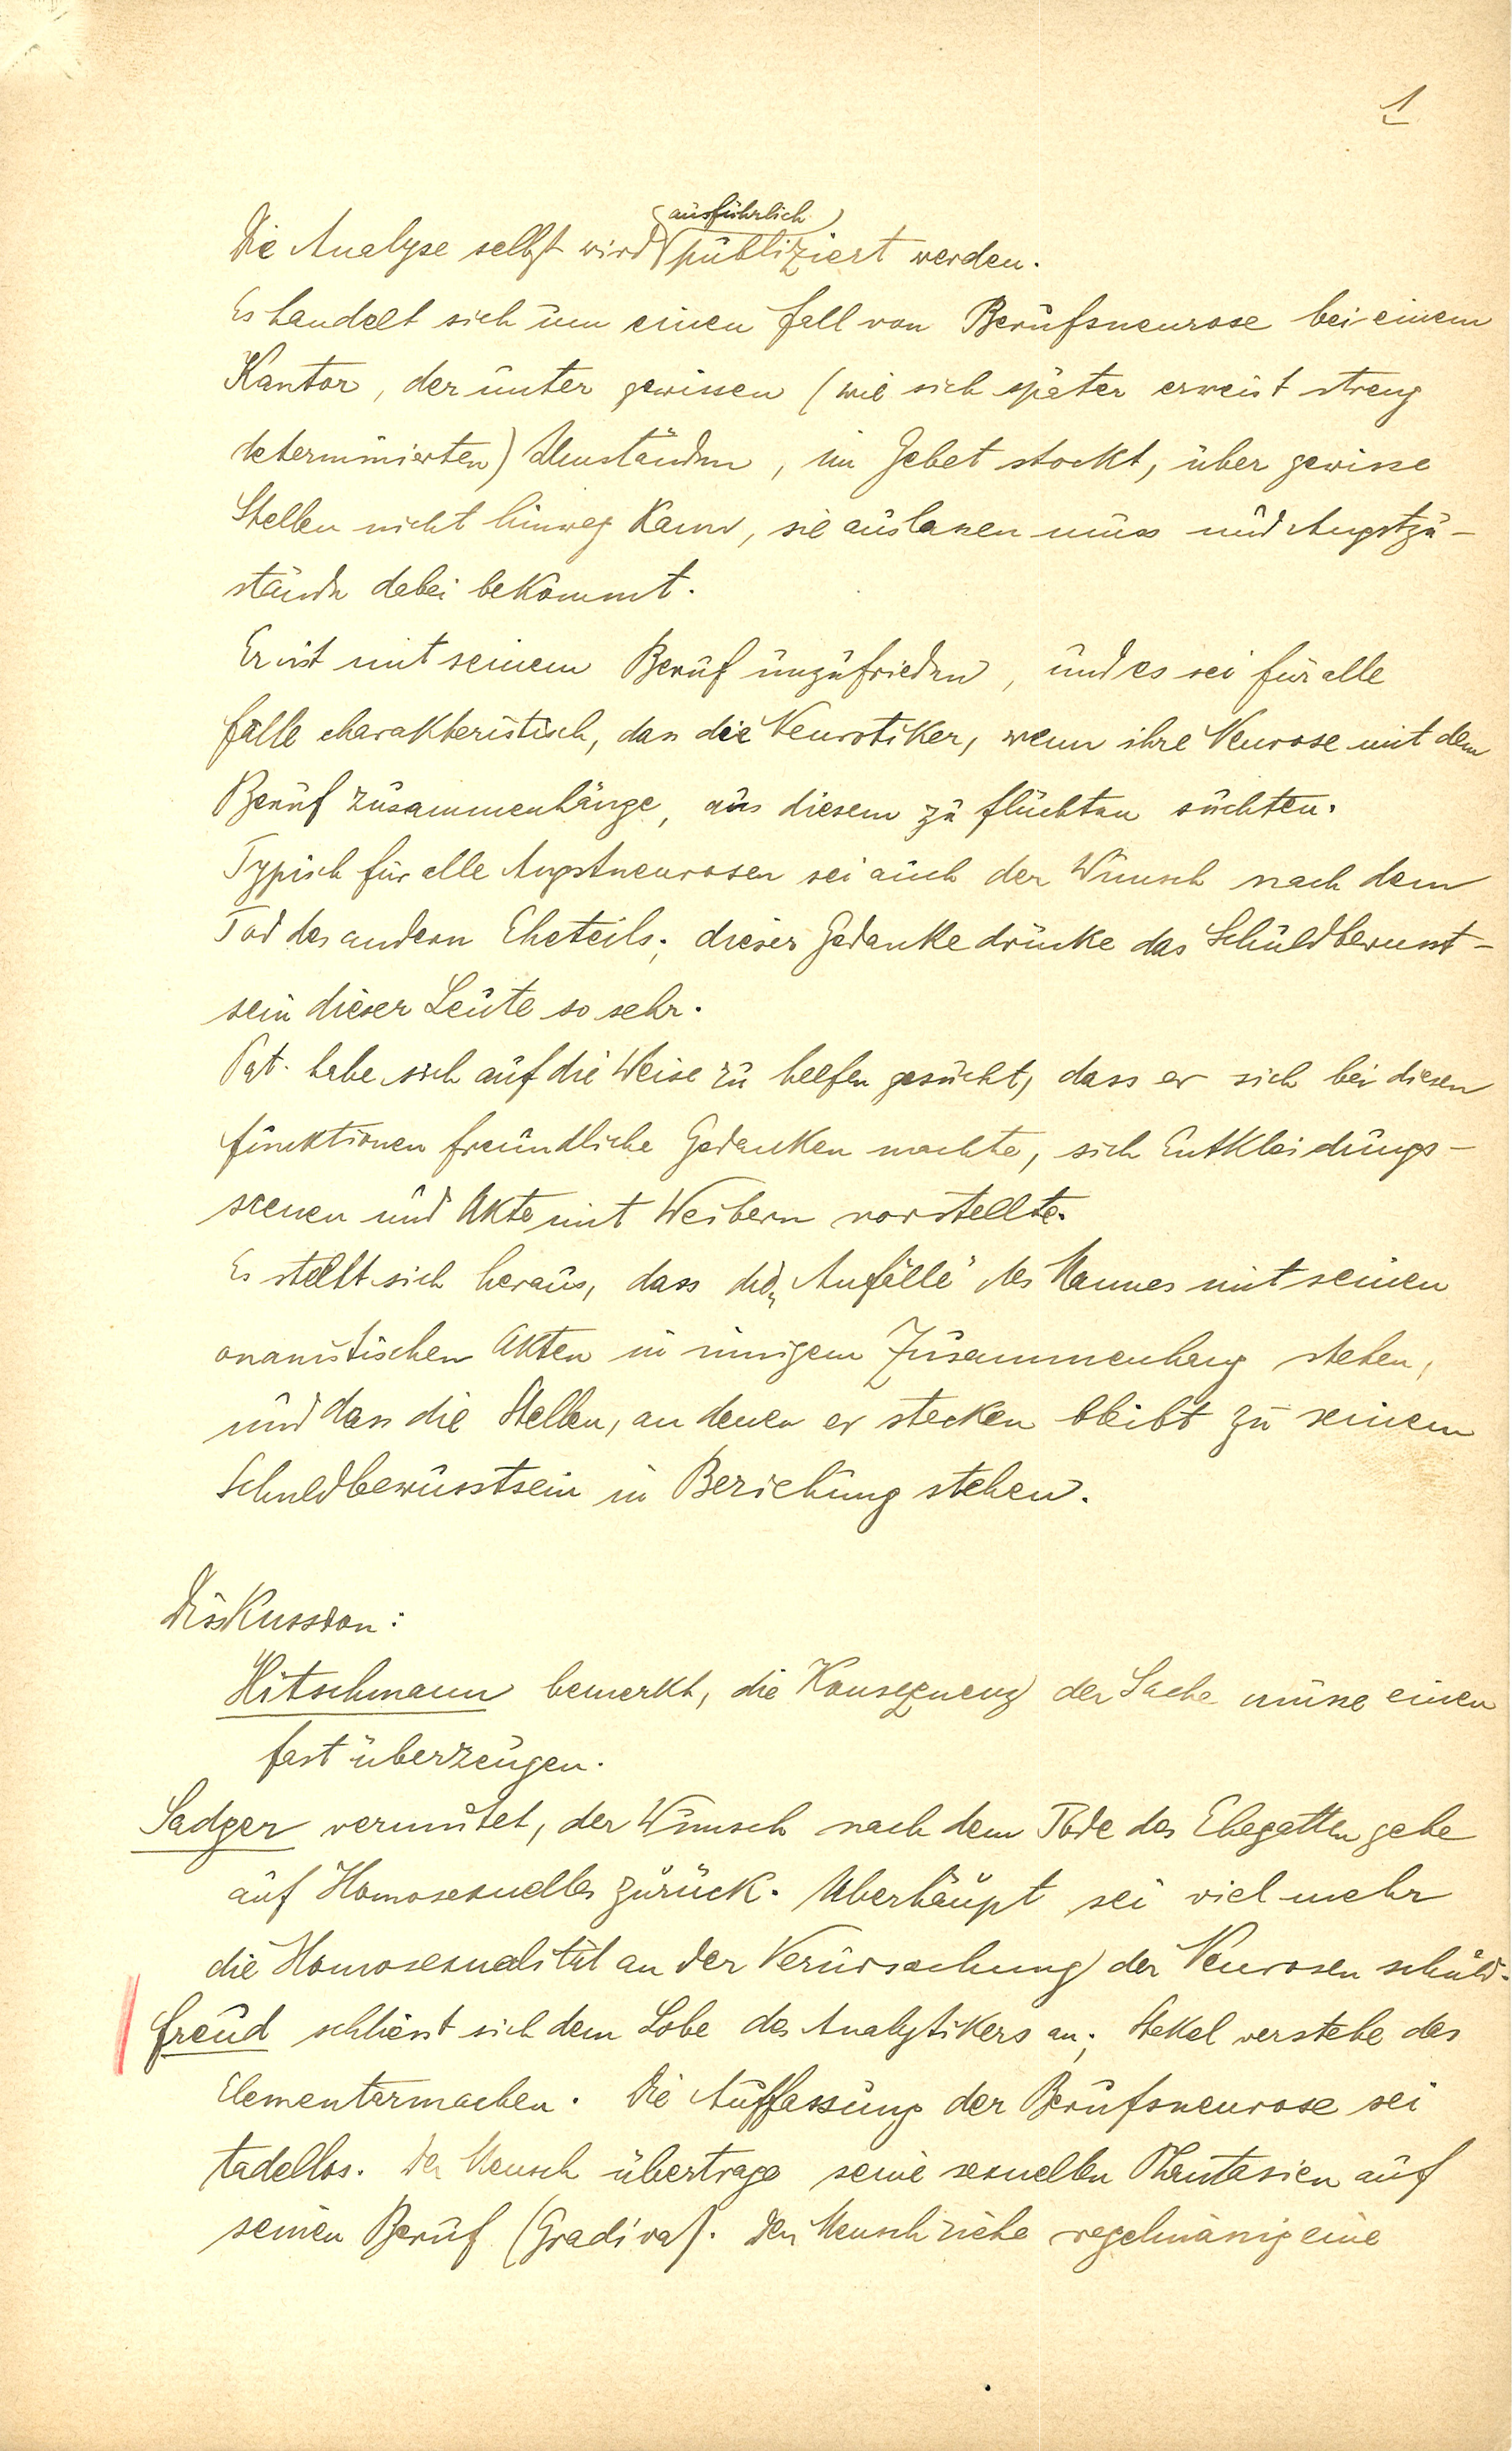 1
ausführlich
Die Analyse selbst wird publiziert werden.
Es handelt sich um einen Fall von Berufsneurose bei einem
Kantor, der unter gewissen (wie sich später erweist streng
determinierten) Umständen, im Gebet stockt, über gewisse
Stellen nicht hinweg kann, sie auslassen muss und Angstzu-
stände dabei bekommt.
Er ist mit seinem Beruf unzufrieden, und es sei für alle
Fälle charakteristisch, dass die Neurotiker, wenn ihre Neurose mit dem
Beruf zusammenhänge, aus diesem zu flüchten suchten.
Typisch für alle Angstneurosen sei auch der Wunsch nach dem
Tod des andern Eheteils; dieser Gedanke drücke das Schuldbewusst-
sein dieser Leute so sehr.
Pat. habe sich auf die Weise zu helfen gesucht, dass er sich bei diesen
Funktionen freundliche Gedanken machte, sich Entkleidungs-
scenen und Akte mit Weibern vorstellte.
Es stellt sich heraus, dass die „Anfälle" des Mannes mit seinen
onanistischen Akten in innigem Zusammenhang stehen,
und dass die Stellen, an denen er stecken bleibt zu seinem
Schuldbewusstsein in Beziehung stehen.
Diskussion:
Hitschmann bemerkt, die Konsequenz der Sache müsse einen
fest überzeugen.
Sadger vermutet, der Wunsch nach dem Tode des Ehegatten gehe
auf Homosexuelles zurück. Überhaupt sei viel mehr
die Homosexualität an der Verursachung der Neurosen schuld.
Freud schliesst sich dem Lobe des Analytikers an; Stekel verstehe das
Elementarmachen. Die Auffassung der Berufsneurose sei
tadellos. Der Mensch übertrage seine sexuellen Phantasien auf
seinen Beruf (Gradiva). Der Mensch ziehe regelmässig eine